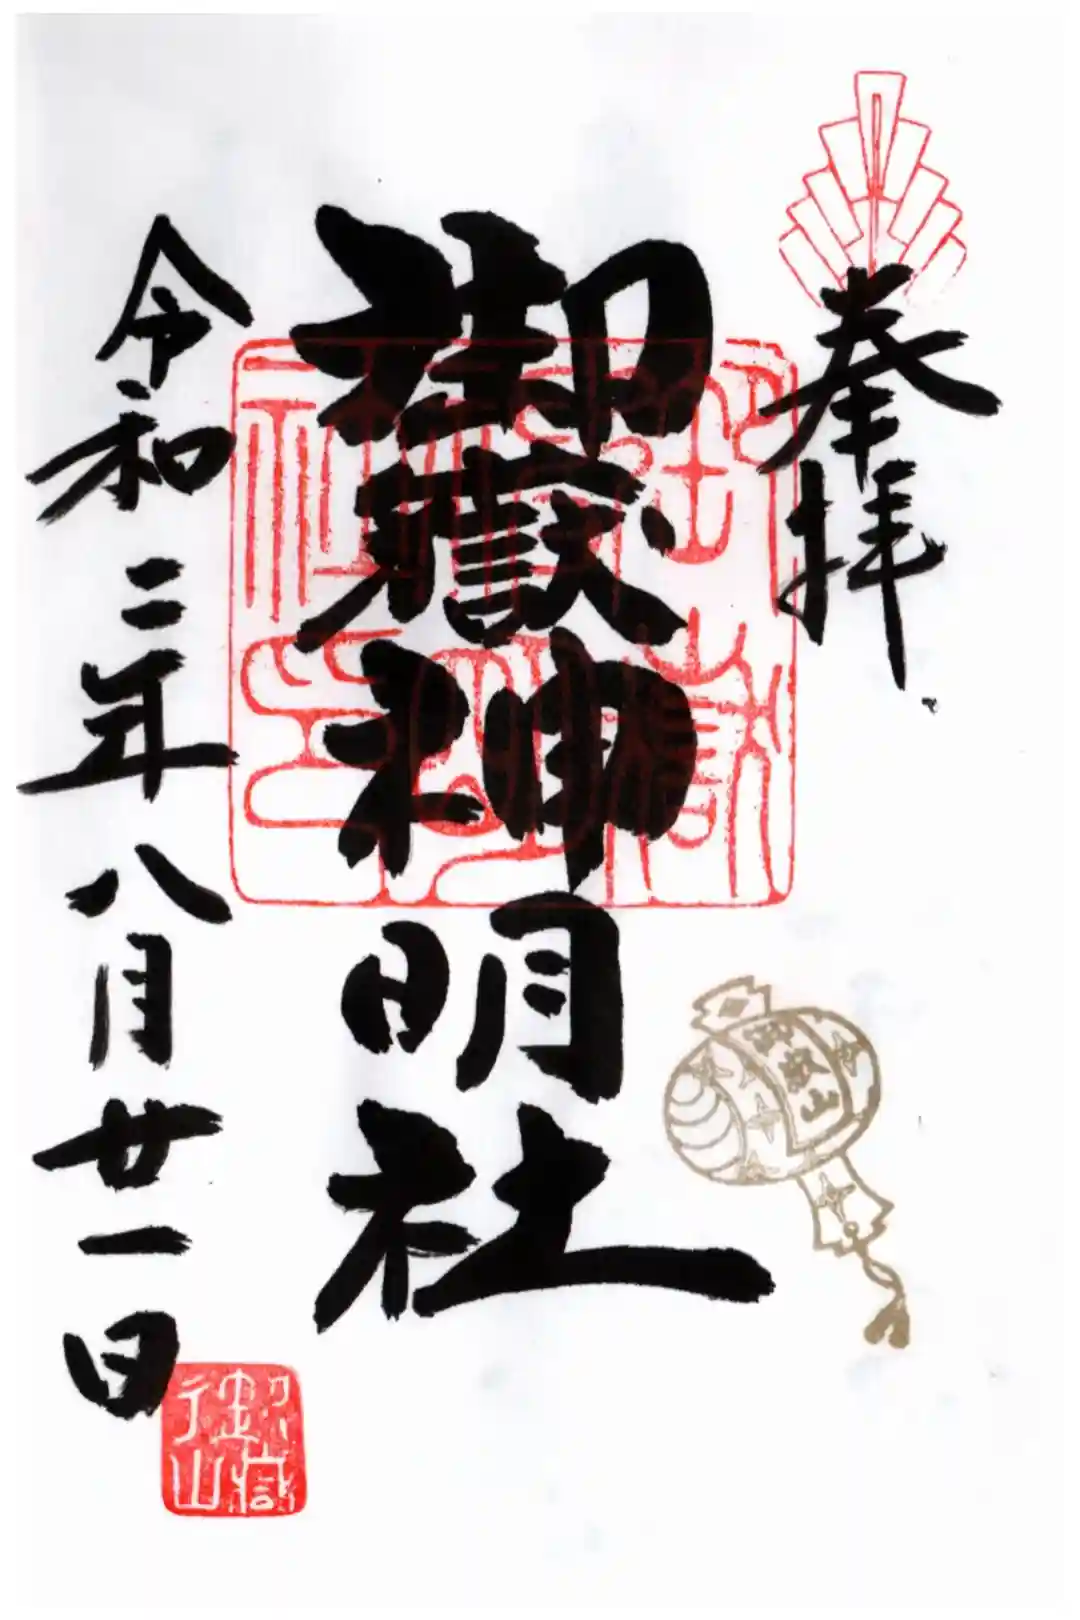 奉拝
御嶽神明社
令和二年八月廿一日
御嶽山
御嶽山